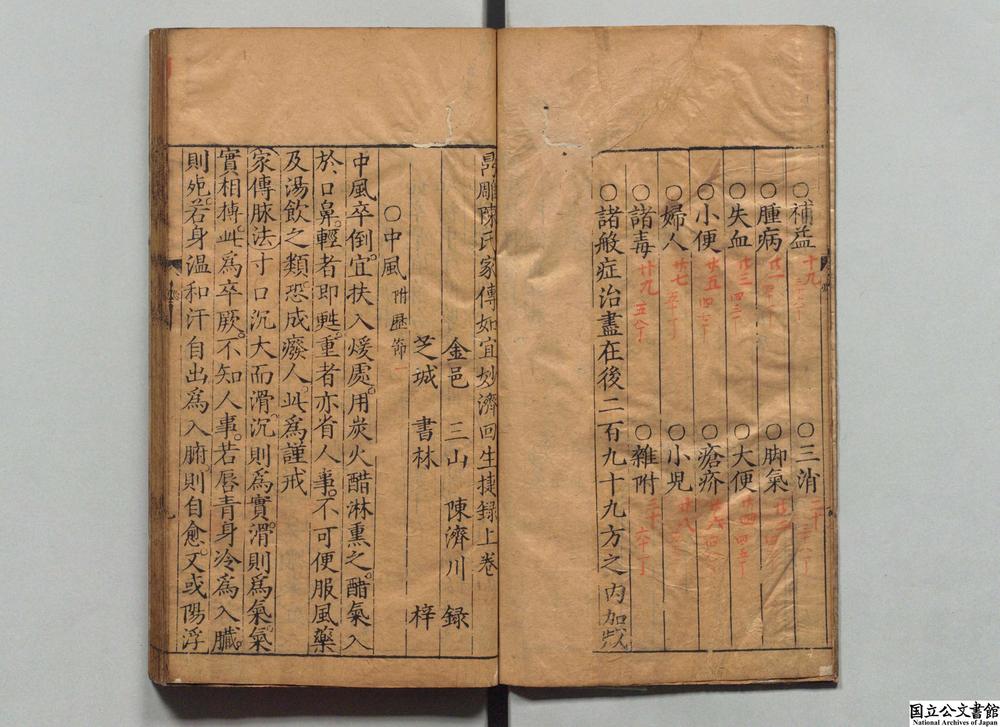 ○補益 十九
○三消 二十
○腫病 廿一
○脚氣 廿二
○失血 廿三
○大便 廿四
○小便 廿五
○瘡疥 廿六
○婦人 廿七
○小児 廿八
○諸毒 廿九
○雜附 三十
○諸般症治盡在後二百九十九方之内
雕陳氏家傳如宜妙濟回生捷録上卷
金邑 三山 陳濟川 録
芝城 書林 梓
○中風 附歷節 一
中風卒倒宜扶入煖處用炭火醋淋熏之醋氣入
於口鼻輕者即甦重者亦省人事不可便服風藥
及湯飲之類恐成癈人此為謹戒
家傳脉法寸口沉大而滑沉則為實滑則為氣氣
實相搏此為卒厥不知人事若唇青身冷為入臓
則死若身温和汗自出為入腑則自愈又或陽浮
国立公文書館
National Archives of Japan